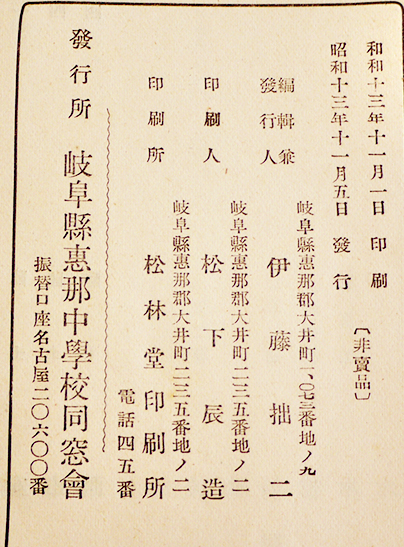 和和十三年十一月一日 印刷
昭和十三年十一月五日 發行
〔非賣品〕
岐阜縣惠那郡大井町一、〇七三番地ノ九
編輯兼
發行人 伊藤拙二
岐阜縣惠那郡大井町二三五番地ノ二
印刷人 松下辰造
岐阜縣惠那郡大井町二三五番地ノ二
印刷所 松林堂印刷所
電話四五番
發行所 岐阜縣惠那中學校同窓會
振替口座名古屋二〇六〇〇番